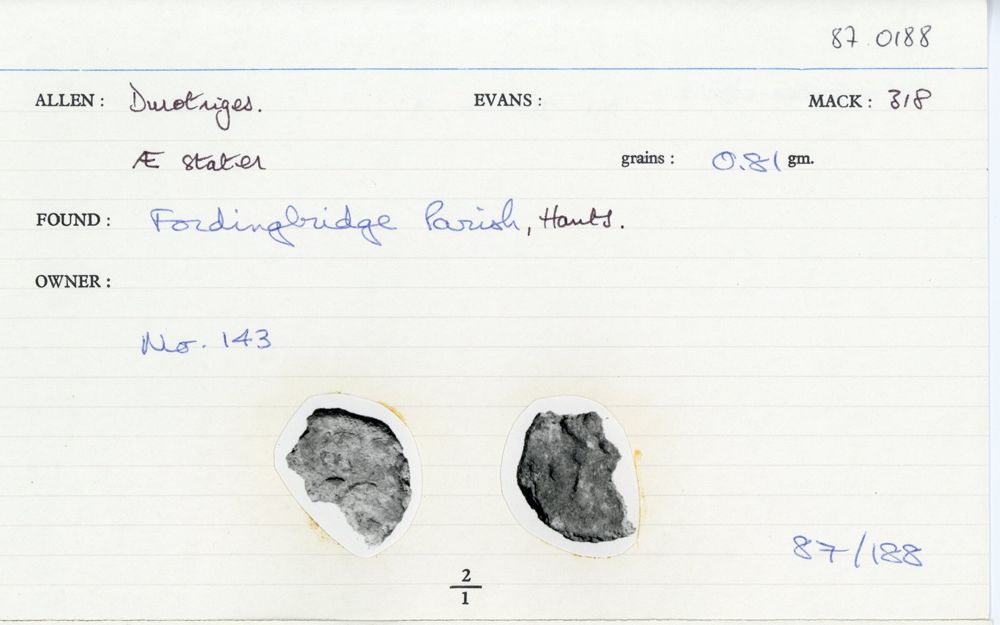 87.0188
ALLEN: Durotriges. EVANS: MACK: 318
Æ stater grains: 0.81 gm.
FOUND: Fordingbridge Parish, Hants.
OWNER:
No. 143
87/188
2
1